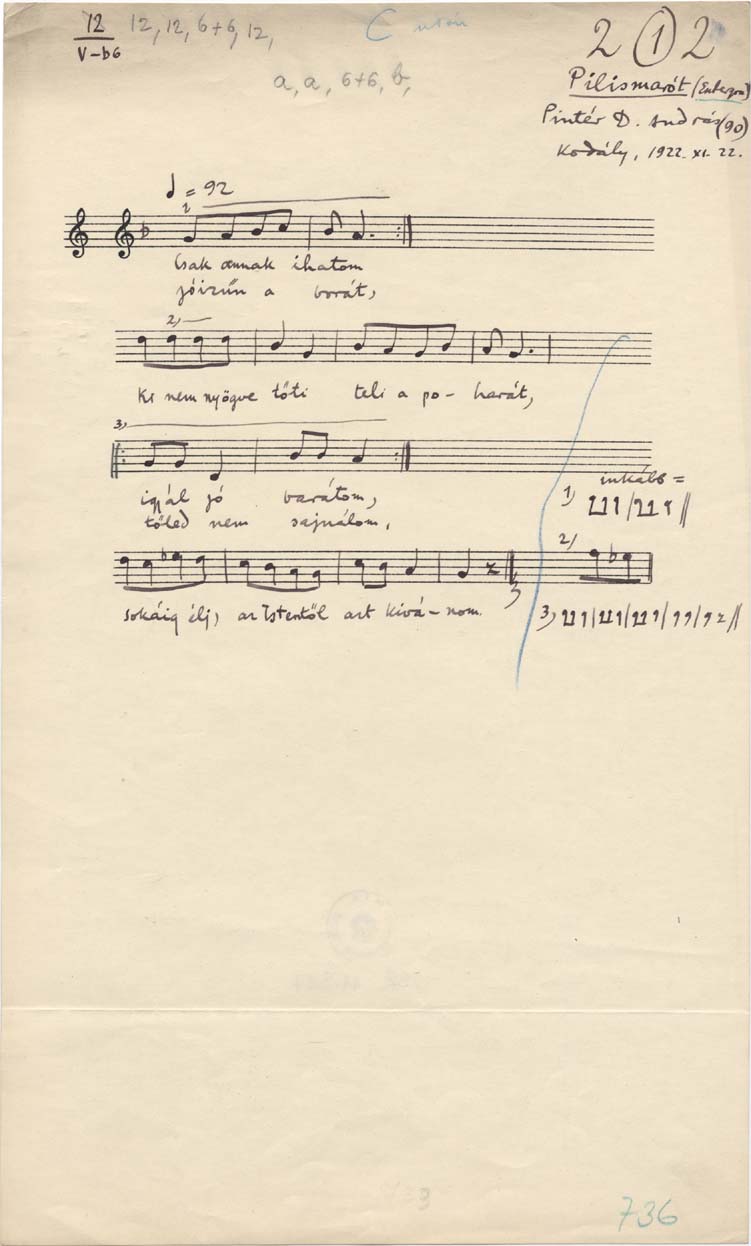 12 12, 12, 6+6, 12, C után
V-b6
a, a, 6+6, b,
2 1 2
Pilismarót (Esztergom)
Pintér D. András (90)
Kodály, 1922. XI. 22.
= 92
1
Csak annak ihatom
jóizűn a borát,
2,
Ki nem nyögve tőti teli a po- harát,
3,
igyál jó barátom,
tőled nem sajnálom,
inkább =
1)
2)
sokáig élj, az Istentől azt kivá-nom.
3)
736